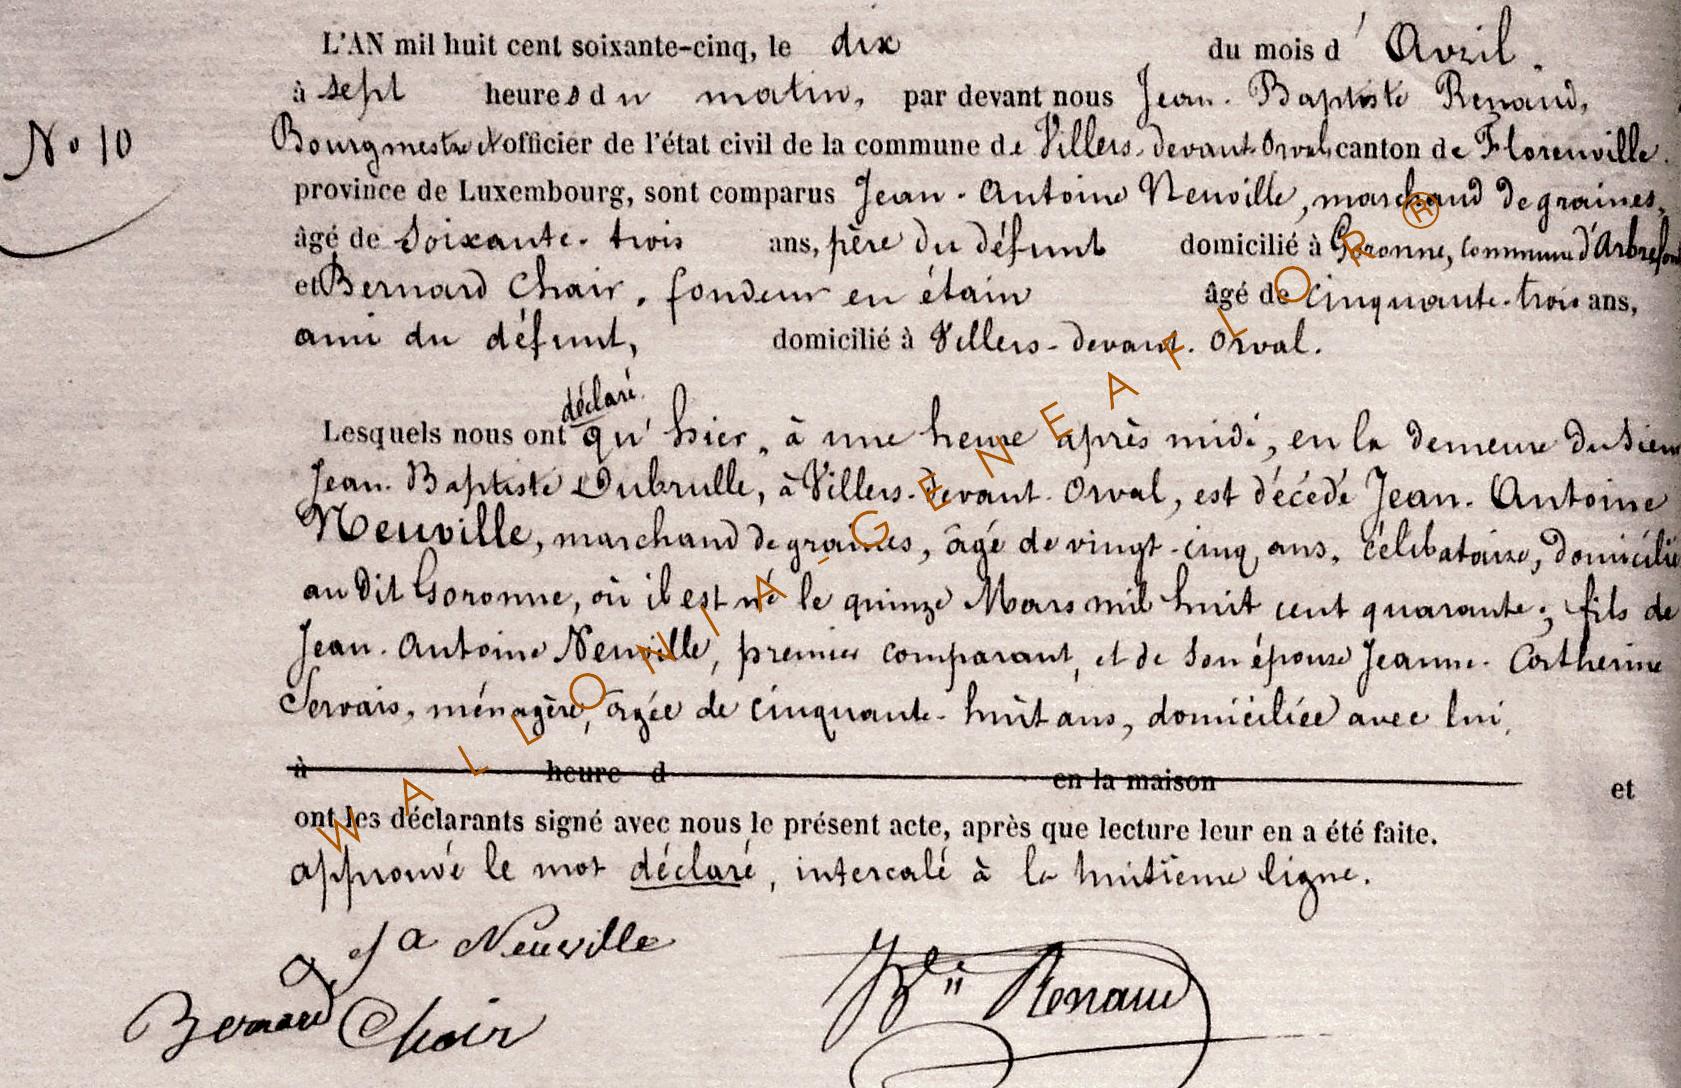 L'AN mil huit cent soixante-cinq, le dix du mois d' Avril.
à sept heures du matin, par devant nous Jean-Baptiste Renaud,
No 10
Bourgmestre et officier de l'état civil de la commune de Villers-devant-Orval, canton de Florenville.
province de Luxembourg, sont comparus Jean-Antoine Neuville, marchand de graines,
âgé de soixante-trois ans, père du défunt domicilié à Goronne, commune d'Arbrefont
et Bernard Choir, fondeur en étain âgé de cinquante-trois ans,
ami du défunt, domicilié à Villers-devant-Orval.
déclaré
Lesquels nous ont qu'hier, à une heure après midi, en la demeure du Sieur
Jean-Baptiste Dubrulle, à Villers-devant-Orval, est décédé Jean-Antoine
Neuville, marchand de graines, âgé de vingt-cinq ans, célibataire, domicilié
au dit Goronne, où il est né le quinze Mars mil huit cent quarante; fils de
Jean-Antoine Neuville, premier comparant, et de son épouse Jeanne-Catherine
Servais, ménagère, âgée de cinquante-huit ans, domiciliée avec lui,
à heure d en la maison et
ont les déclarants signé avec nous le présent acte, après que lecture leur en a été faite.
approuvé le mot déclaré, intercalé à la huitième ligne.
J a Neuville
Bernard Choir
Renaud
WALLONIA-GENEAFLOR®